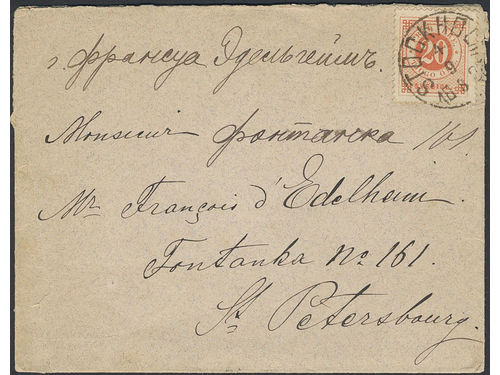 г. Франсуа Эдельгеймъ.
Monsieur Фонтанка 161
Mr François d'Edelheim.
Fontanka No 161.
St Petersbourg.
STOCKHOLM
20